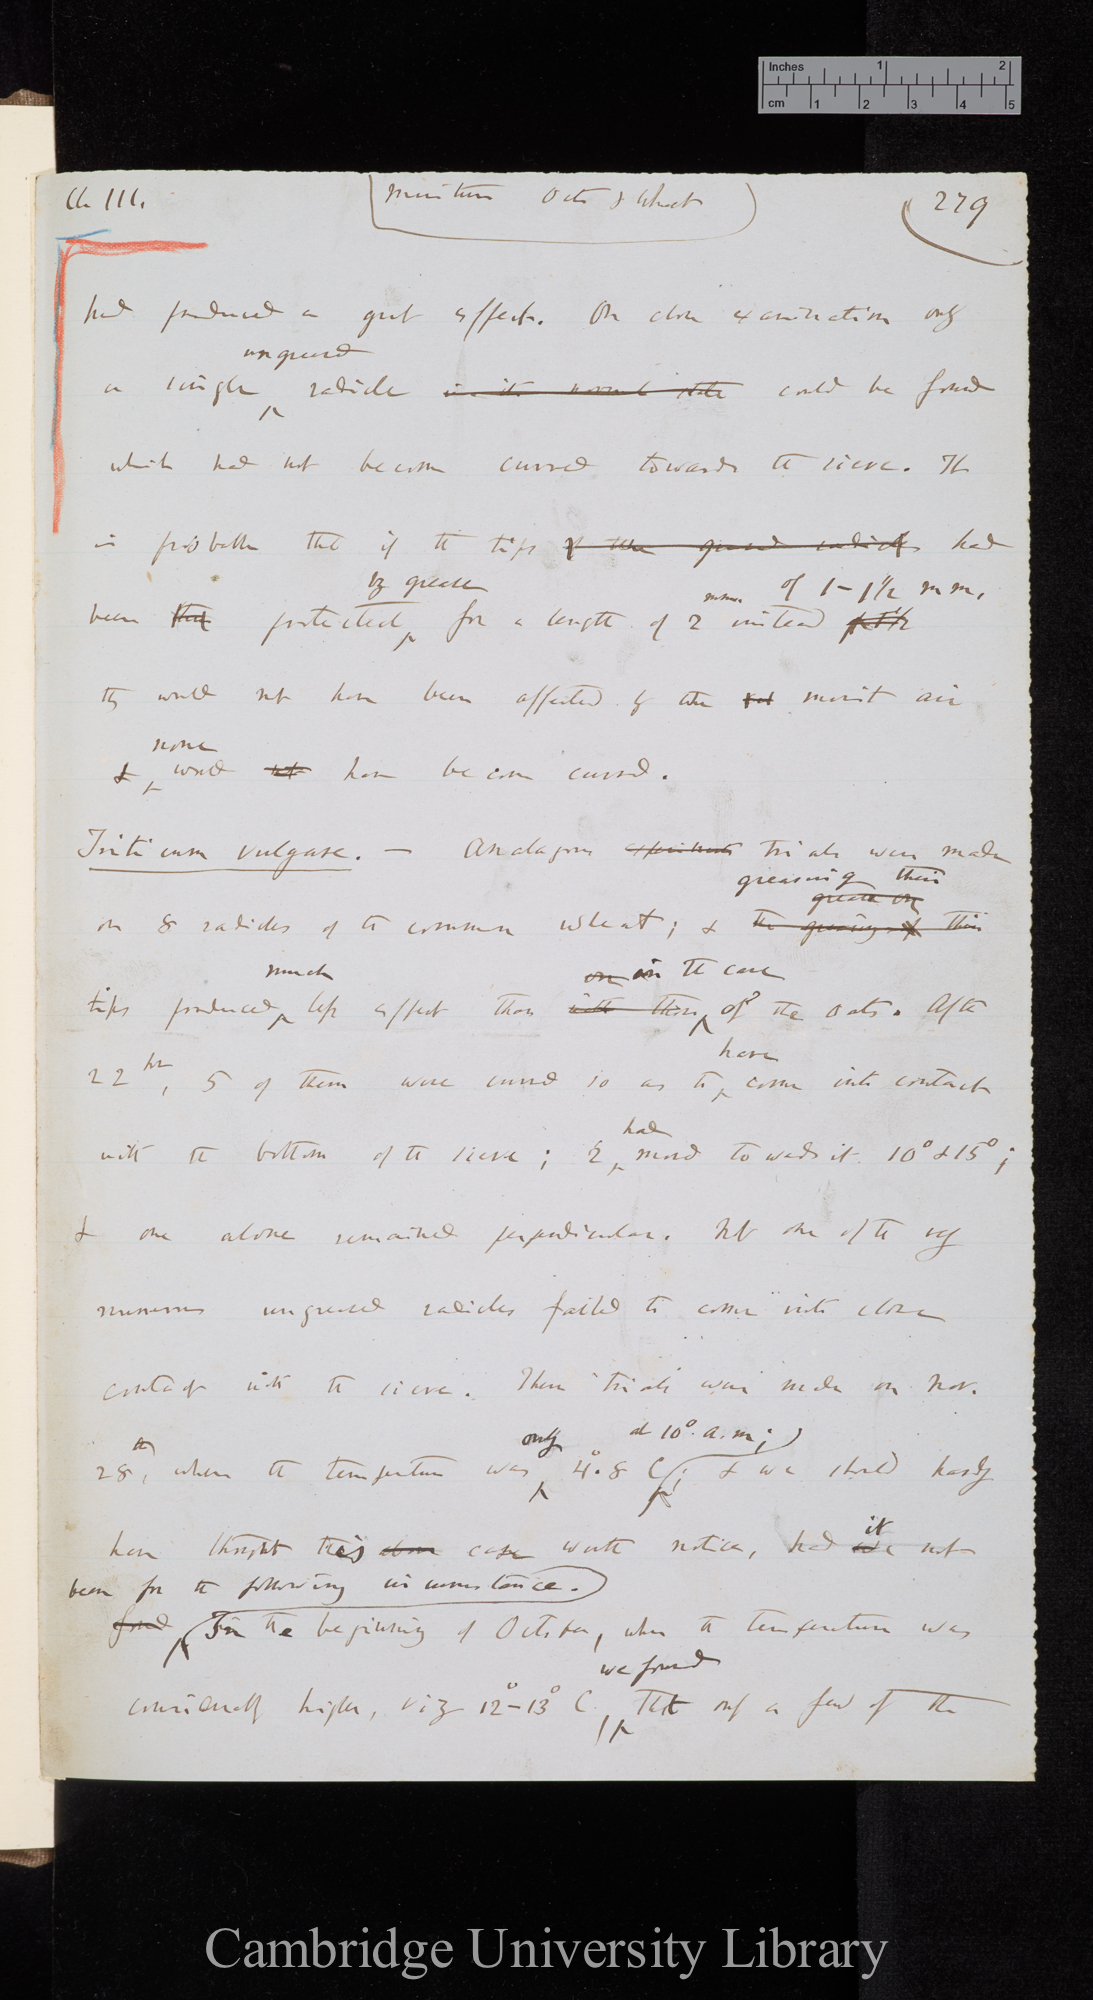 Inches 1 2
cm 1 2 3 4 5
Ch III.
Moisture Oats & Wheat
279
had produced a great effect. On close examination only
ungreased
a single radicle in its normal state could be found
which had not become curved towards the sieve. It
is probable that if the tips of the greased radicles had
by grease mm of 1–1½ mm.
been protected for a length of 2 instead
they would not have been affected by the moist air
none
& would not have become curved.
Triticum vulgare. — Analogous experiments trials were made
greasing their
grease on
on 8 radicles of the common wheat; & the greasing of their
much on in the case
tips produced less effect than with them of the oats. After
have
22 hrs, 5 of them were curved so as to come into contact
had
with the bottom of the sieve; 2 moved towards it 10° & 15°;
& one alone remained perpendicular. Not one of the very
numerous ungreased radicles failed to come into close
contact with the sieve. These trials were made on Nov.
th only at 10° a.m.;
28, when the temperature was 4°.8 C; & we should hardly
it
have thought this case worth notice, had we not
been for the following circumstance.
found In the beginning of October, when the temperature was
we found
considerably higher, viz 12°–13° C, that only a few of the
Cambridge University Library